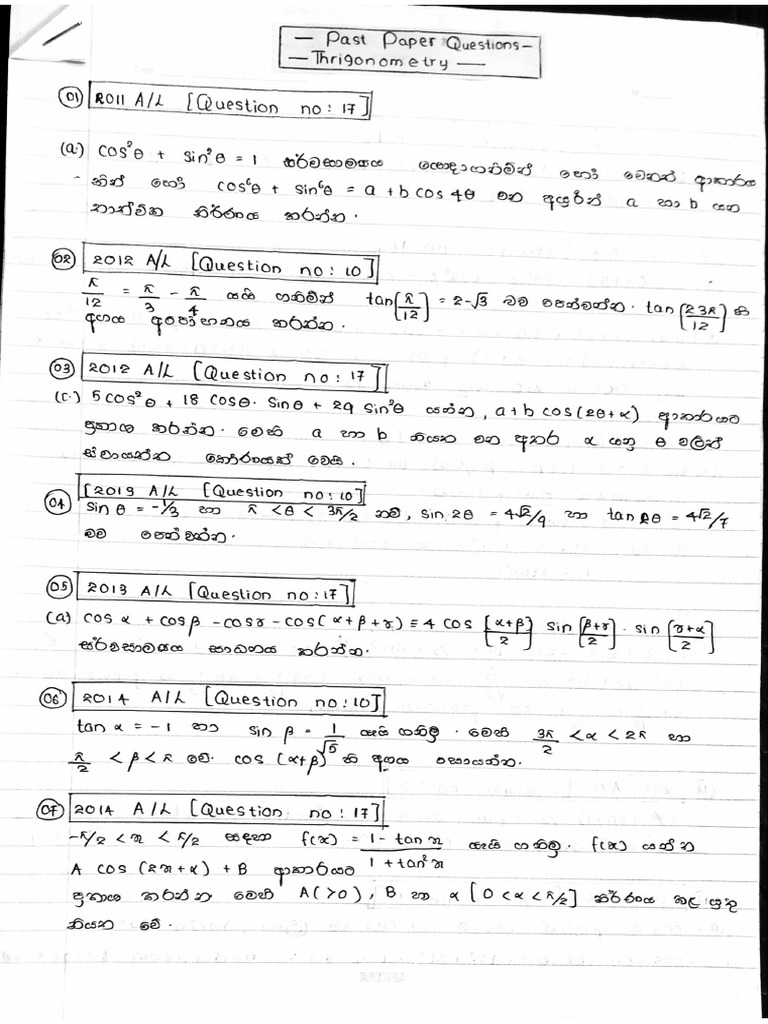 — Past Paper Questions —
— Thrigonometry —
01 2011 A/L [Question no: 17]
(a) cos²θ + sin²θ = 1 සර්වසාමය හෝ වෙනත් ආකාරය
- කින් හෝ cos⁶θ + sin⁶θ = a + b cos 4θ වන අයුරින් a හා b යන
තාත්වික නිර්ණය කරන්න.
02 2012 A/L [Question no: 10]
π/12 = π/3 - π/4 යැයි ගනිමින් tan[π/12] = 2-√3 බව පෙන්වන්න. tan[23π/12] හි
අගය අපෝහනය කරන්න.
03 2012 A/L [Question no: 17]
(c.) 5cos²θ + 18 cosθ. sinθ + 29 sin²θ යන්න, a+b cos(2θ+α) ආකාරයට
ප්‍රකාශ කරන්න. මෙහි a හා b නියත වන අතර α යනු θ වලින්
ස්වායත්ත කෝණයක් වෙයි.
04 [2013 A/L [Question no: 10]
sin θ = -1/3 හා π < θ < 3π/2 නම්, sin 2θ = 4√2/9 හා tan 2θ = 4√2/7
බව පෙන්වන්න.
05 2013 A/L [Question no: 17]
(a) cos α + cos β - cos γ - cos(α+β+γ) ≡ 4 cos [α+β/2] sin [β+γ/2] . sin [γ+α/2]
සර්වසාමය සාධනය කරන්න.
06 2014 A/L [Question no: 10]
tan α = -1 හා sin β = 1/√5 යැයි ගනිමු. මෙහි 3π/2 < α < 2π හා
π/2 < β < π වේ. cos (α+β) හි අගය සොයන්න.
07 2014 A/L [Question no: 17]
-π/2 < x < π/2 සඳහා f(x) = 1 - tan x / 1 + tan²x යැයි ගනිමු. f(x) යන්න
A cos (2x+α) + B ආකාරයට
ප්‍රකාශ කරන්න මෙහි A(>0), B හා α [0<α<π/2] නිර්ණය කළ යුතු
නියත වේ.